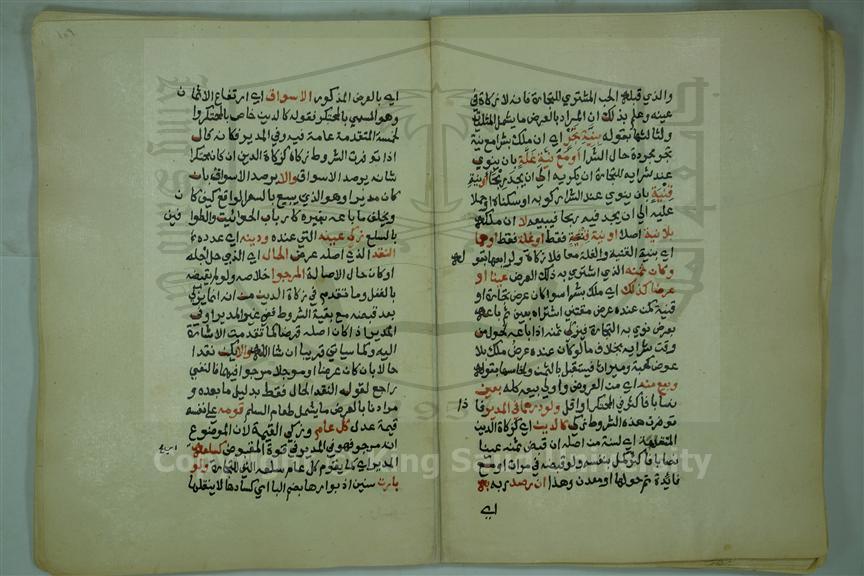 والذي قبله الحب المشتري للتجارة فانه لا زكاة في
عينه وعلم بذلك ان المراد بالعرض ما يشمل المثلي
ولثالثها بقوله بنية تجر اي ان ملك بشرا مع نية
تجر مجردة حال الشرا او مع نية غلة بان ينوي
عند شرايه للتجارة ان يكريه الى ان يجد ربحا او نية
قنية بان ينوي عند الشرا ركوبه او سكناه او حملا
عليه الى ان يجد فيه ربحا فيبيعه لا ان ملكه
بلا نية اصلا او نية قنية فقط او غلة فقط او هما
اي بنية القنية والغلة معا فلا زكاة ولرابعها بقو له
وكان ثمنه الذي اشتري به ذلك العرض عينا او
عرضا كذلك اي ملك بشرا سوا كان عرض تجارة او
قنية كمن عنده عرض مقتني اشتراه بعين ثم باعه
بعرض نوي به التجارة فيزكي ثمنه اذا باعه لحول من
وقت شرايه بخلاف ما لو كان عنده عرض ملك بلا
عوض كهبة وميراث فيستقبل بالثمن ولخامسها بقوله
وبيع منه اي من العروض واولي بيعه كله بعين
نصابا فاكثر في المحتكر او اقل ولو درهما في المدير فا ذا
توفرت هذه الشروط زكي كالدين اي كزكاة الدين
المتقدمة اي لسنة من اصله ان قبض ثمنه عينا
نصابا فاكثر كمل بنفسه ولو قبضه في مرات او مع
فائدة تم حولها او معدن وهذا ان رصد ربه به
اي
١٥٦
اي بالعرض المذكور الاسواق اي ارتفاع الاثما ن
وهو المسمي بالمحتكر فقوله كالدين خاص بالمحتكر وا
لخمسة المتقدمة عامة فيه وفي المدير فكانه قال
اذا توفرت الشروط زكاه كزكاة الدين ان كان محتكرا
شانه يرصد الاسواق والا يرصد الاسواق بان
كان مديرا وهو الذي يبيع بالسعر الواقع كيف كا ن
ويخلف ما باعه بغيره كارباب الحوانيت والطوا فين
بالسلع زكي عينه التي عنده ودينه اي عدده كا
النقد الذي اصله عرض الحال اي الذي حل اجله
او كان حالا بالاصالة المرجوا خلاصه ولو لم يقبضه
بالفعل وما تقدم في زكاة الدين من انه انما يزكي
بعد قبضه مع بقية الشروط ففي غير المدير او في
المدير اذا كان اصله قرضا كما تقدمت الاشارة
اليه وكما سياتي قريبا ان شا الله والا يكن نقدا
حالا بان كان عرضا او موجلا مرجوا فيهما فالنفي
راجع لقوله النقد الحال فقط بدليل ما بعده و
مرادنا بالعرض ما يشمل طعام السلم قومه علي نفسه
قيمة عدل كل عام وزكي القيمة لان الموضوع
انه مرجو فهو في المدير في قوة المقبوض كسلعه اي سلع
المدير اي كما يقوم كل عام سلعه التي للتجارة ولو
بارت سنين اذ بوارها بضم البا اي كسادها لا ينقلها